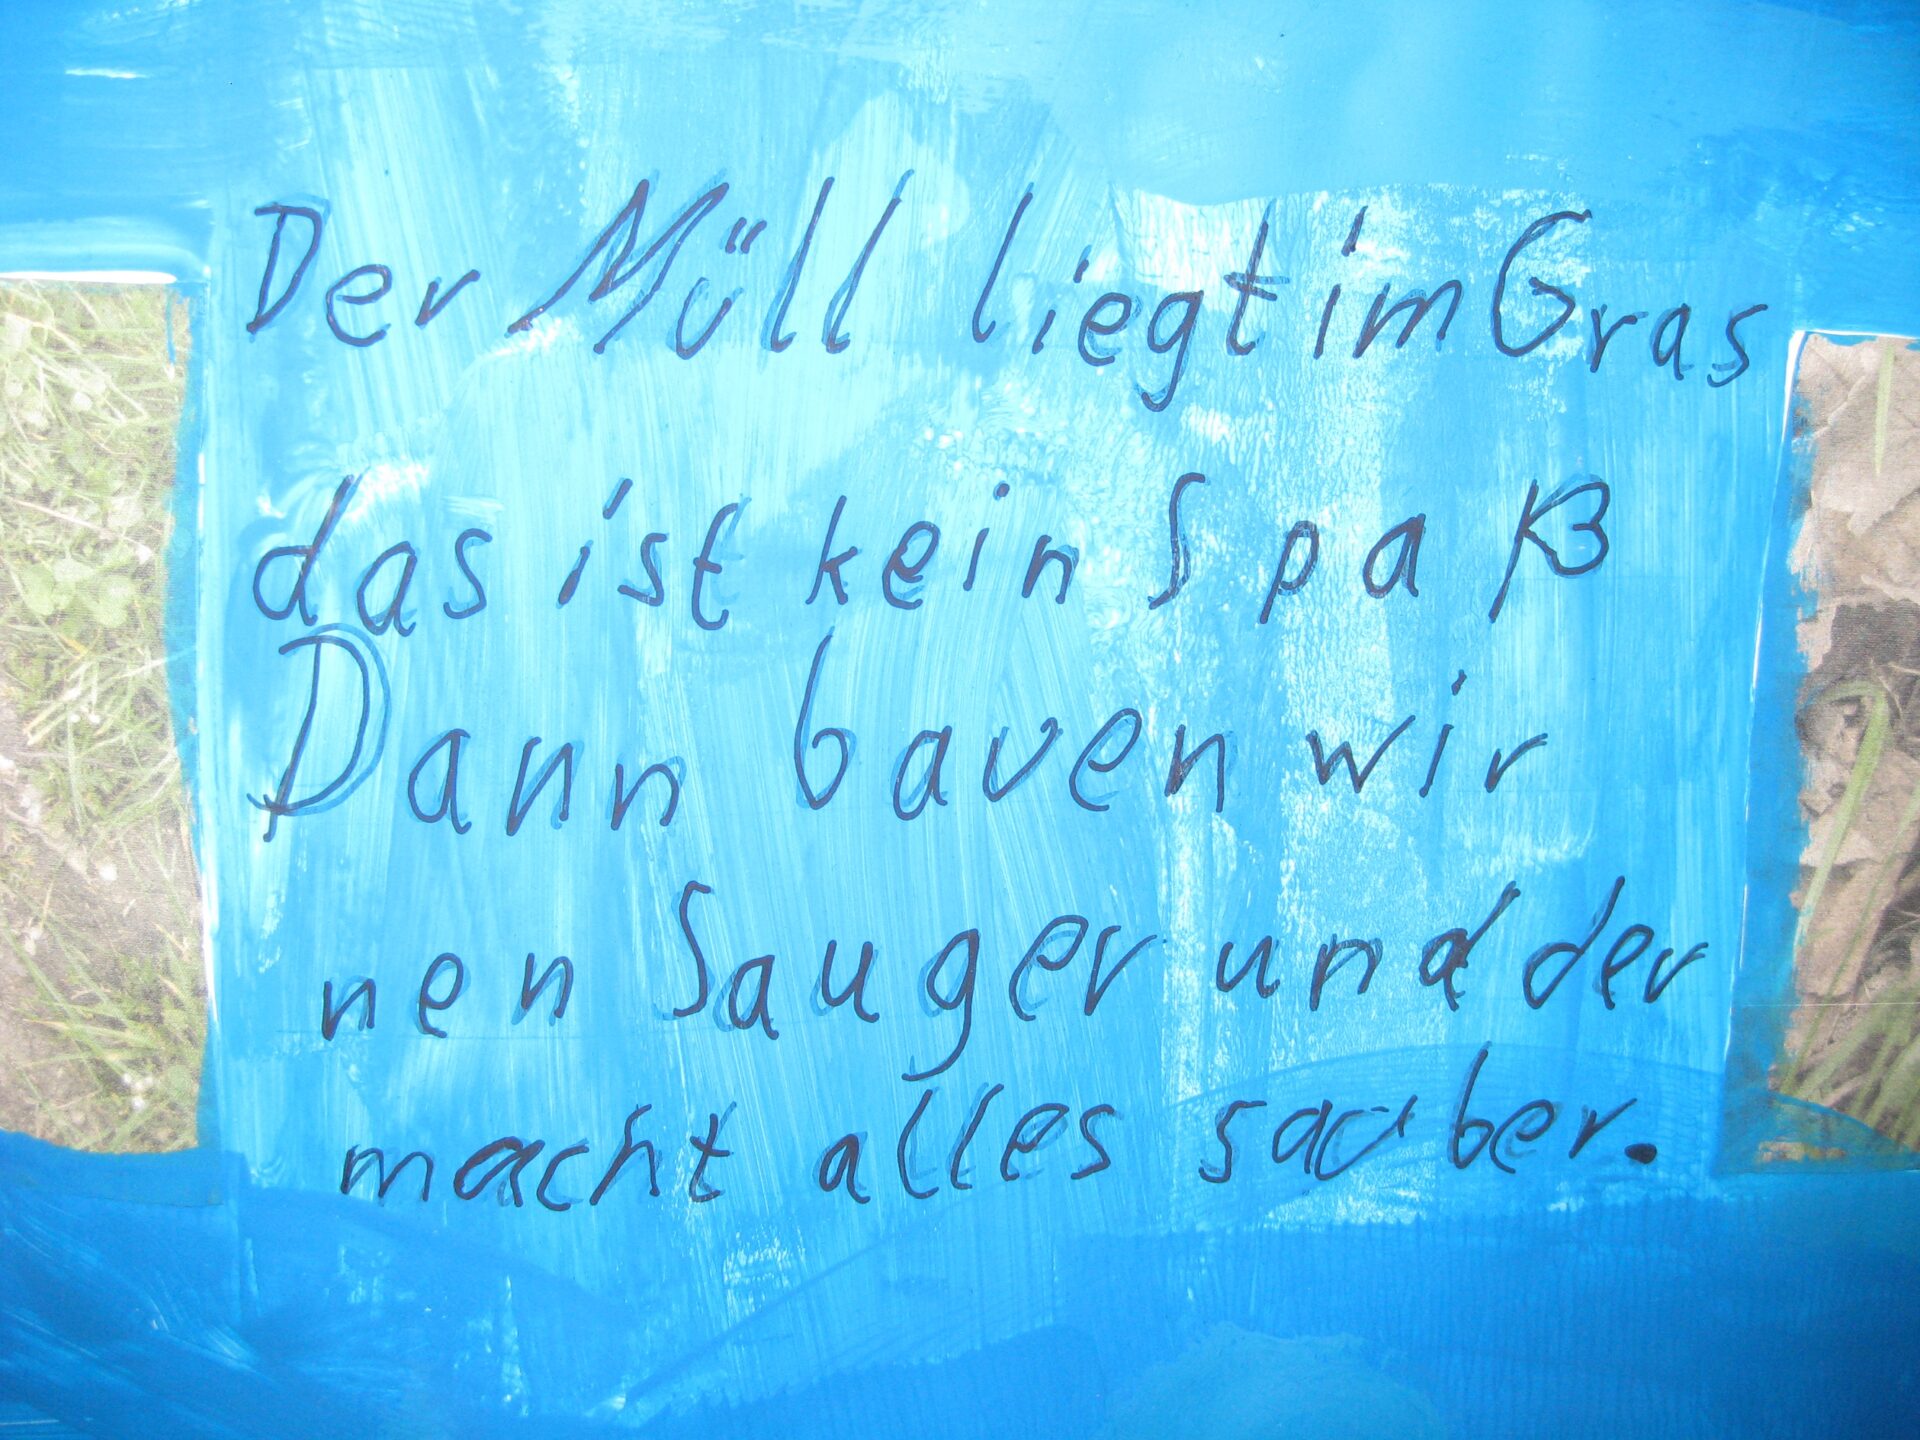 Der Müll liegt im Gras
das ist kein Spaß
Dann bauen wir
nen Sauger und der
macht alles sauber.